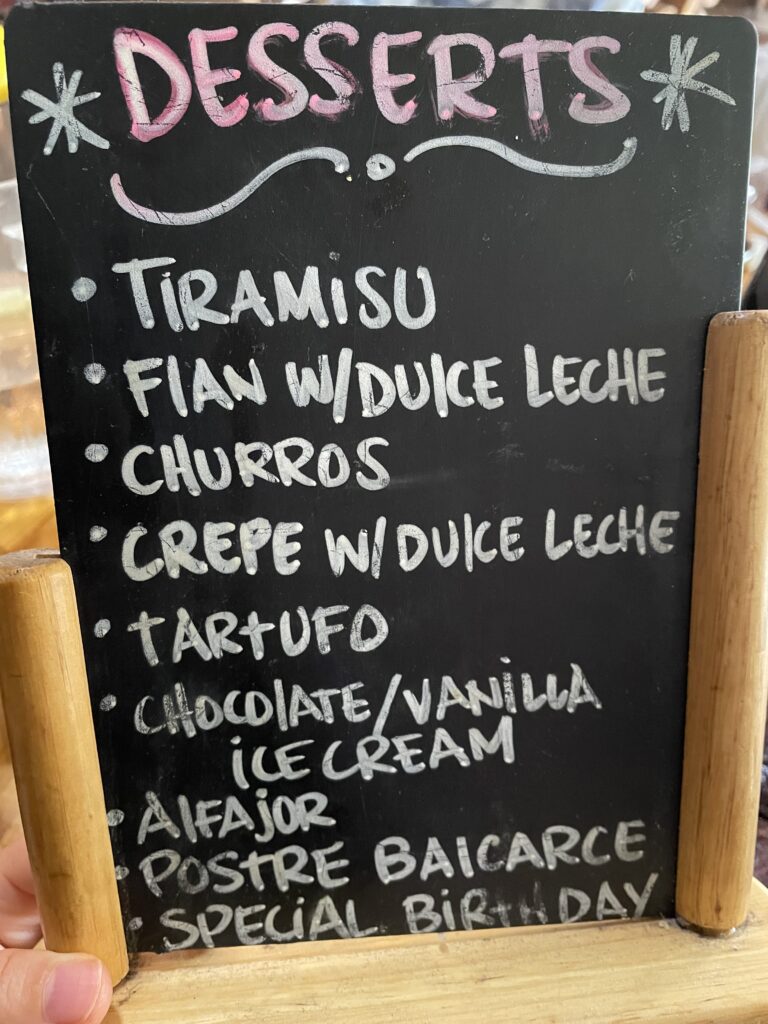 DESSERTS
• TiRAMiSU
• FlAN W/DUlCE LECHE
• CHURROS
• CREPE W/DUlCE LECHE
• TARTUFO
• CHOCOlATE/VANiLLA
iCE CREAM
• AlFAJOR
• POSTRE BAlCARCE
• SPECiAL BiRTHDAY